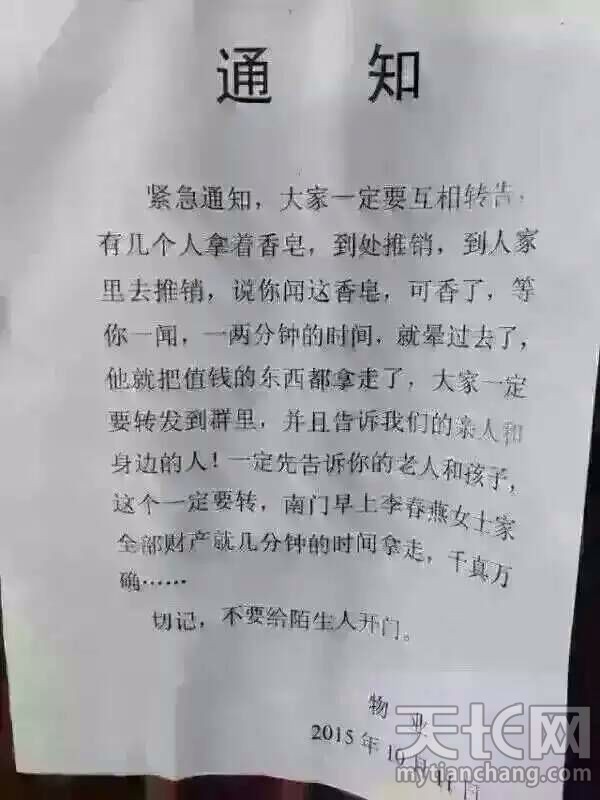 通 知
紧急通知，大家一定要互相转告，
有几个人拿着香皂，到处推销，到人家
里去推销，说你闻这香皂，可香了，等
你一闻，一两分钟的时间，就晕过去了，
他就把值钱的东西都拿走了，大家一定
要转发到群里，并且告诉我们的亲人和
身边的人！一定先告诉你的老人和孩子，
这个一定要转，南门早上李春燕女士家
全部财产就几分钟的时间拿走，千真万
确……
切记，不要给陌生人开门。
物 业
2015 年 10 月 日
天长网
mytianchang.com